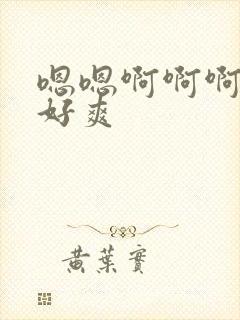 嗯嗯啊啊啊
好爽
黄葉實